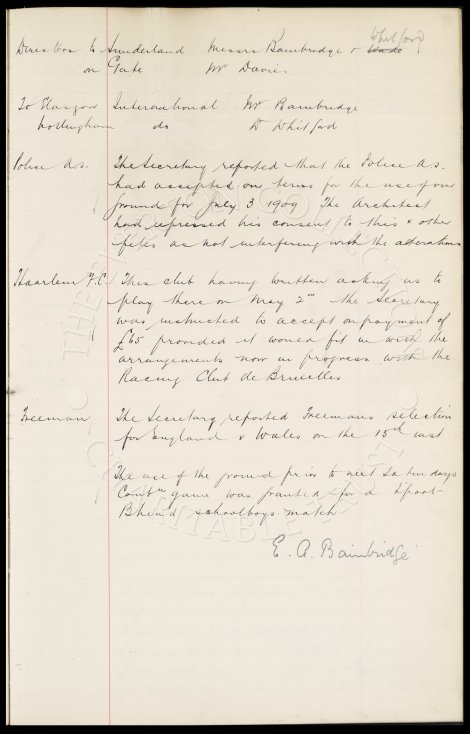 Whitford
Directors to Sunderland Messrs Bambridge & Wade
on Gate Mr Davies
To Glasgow International Mr Bambridge
Nottingham do Dr Whitford
Police A.S. The Secretary reported that the Police A.S.
had accepted our terms for the use of our
ground for July 3 1909 The Architect
had expressed his consent to this & other
fetes as not interfering with the alterations
Haarlem F.C. This club having written asking us to
play there on May 2nd the Secretary
was instructed to accept on payment of
£65 provided it would fit in with the
arrangements now in progress with the
Racing Club de Bruxelles
Freeman The Secretary reported Freemans selection
for England v Wales on the 15th inst
The use of the ground prior to next Saturdays
Combtn game was granted for a
schoolboys match
E. A. Bambridge